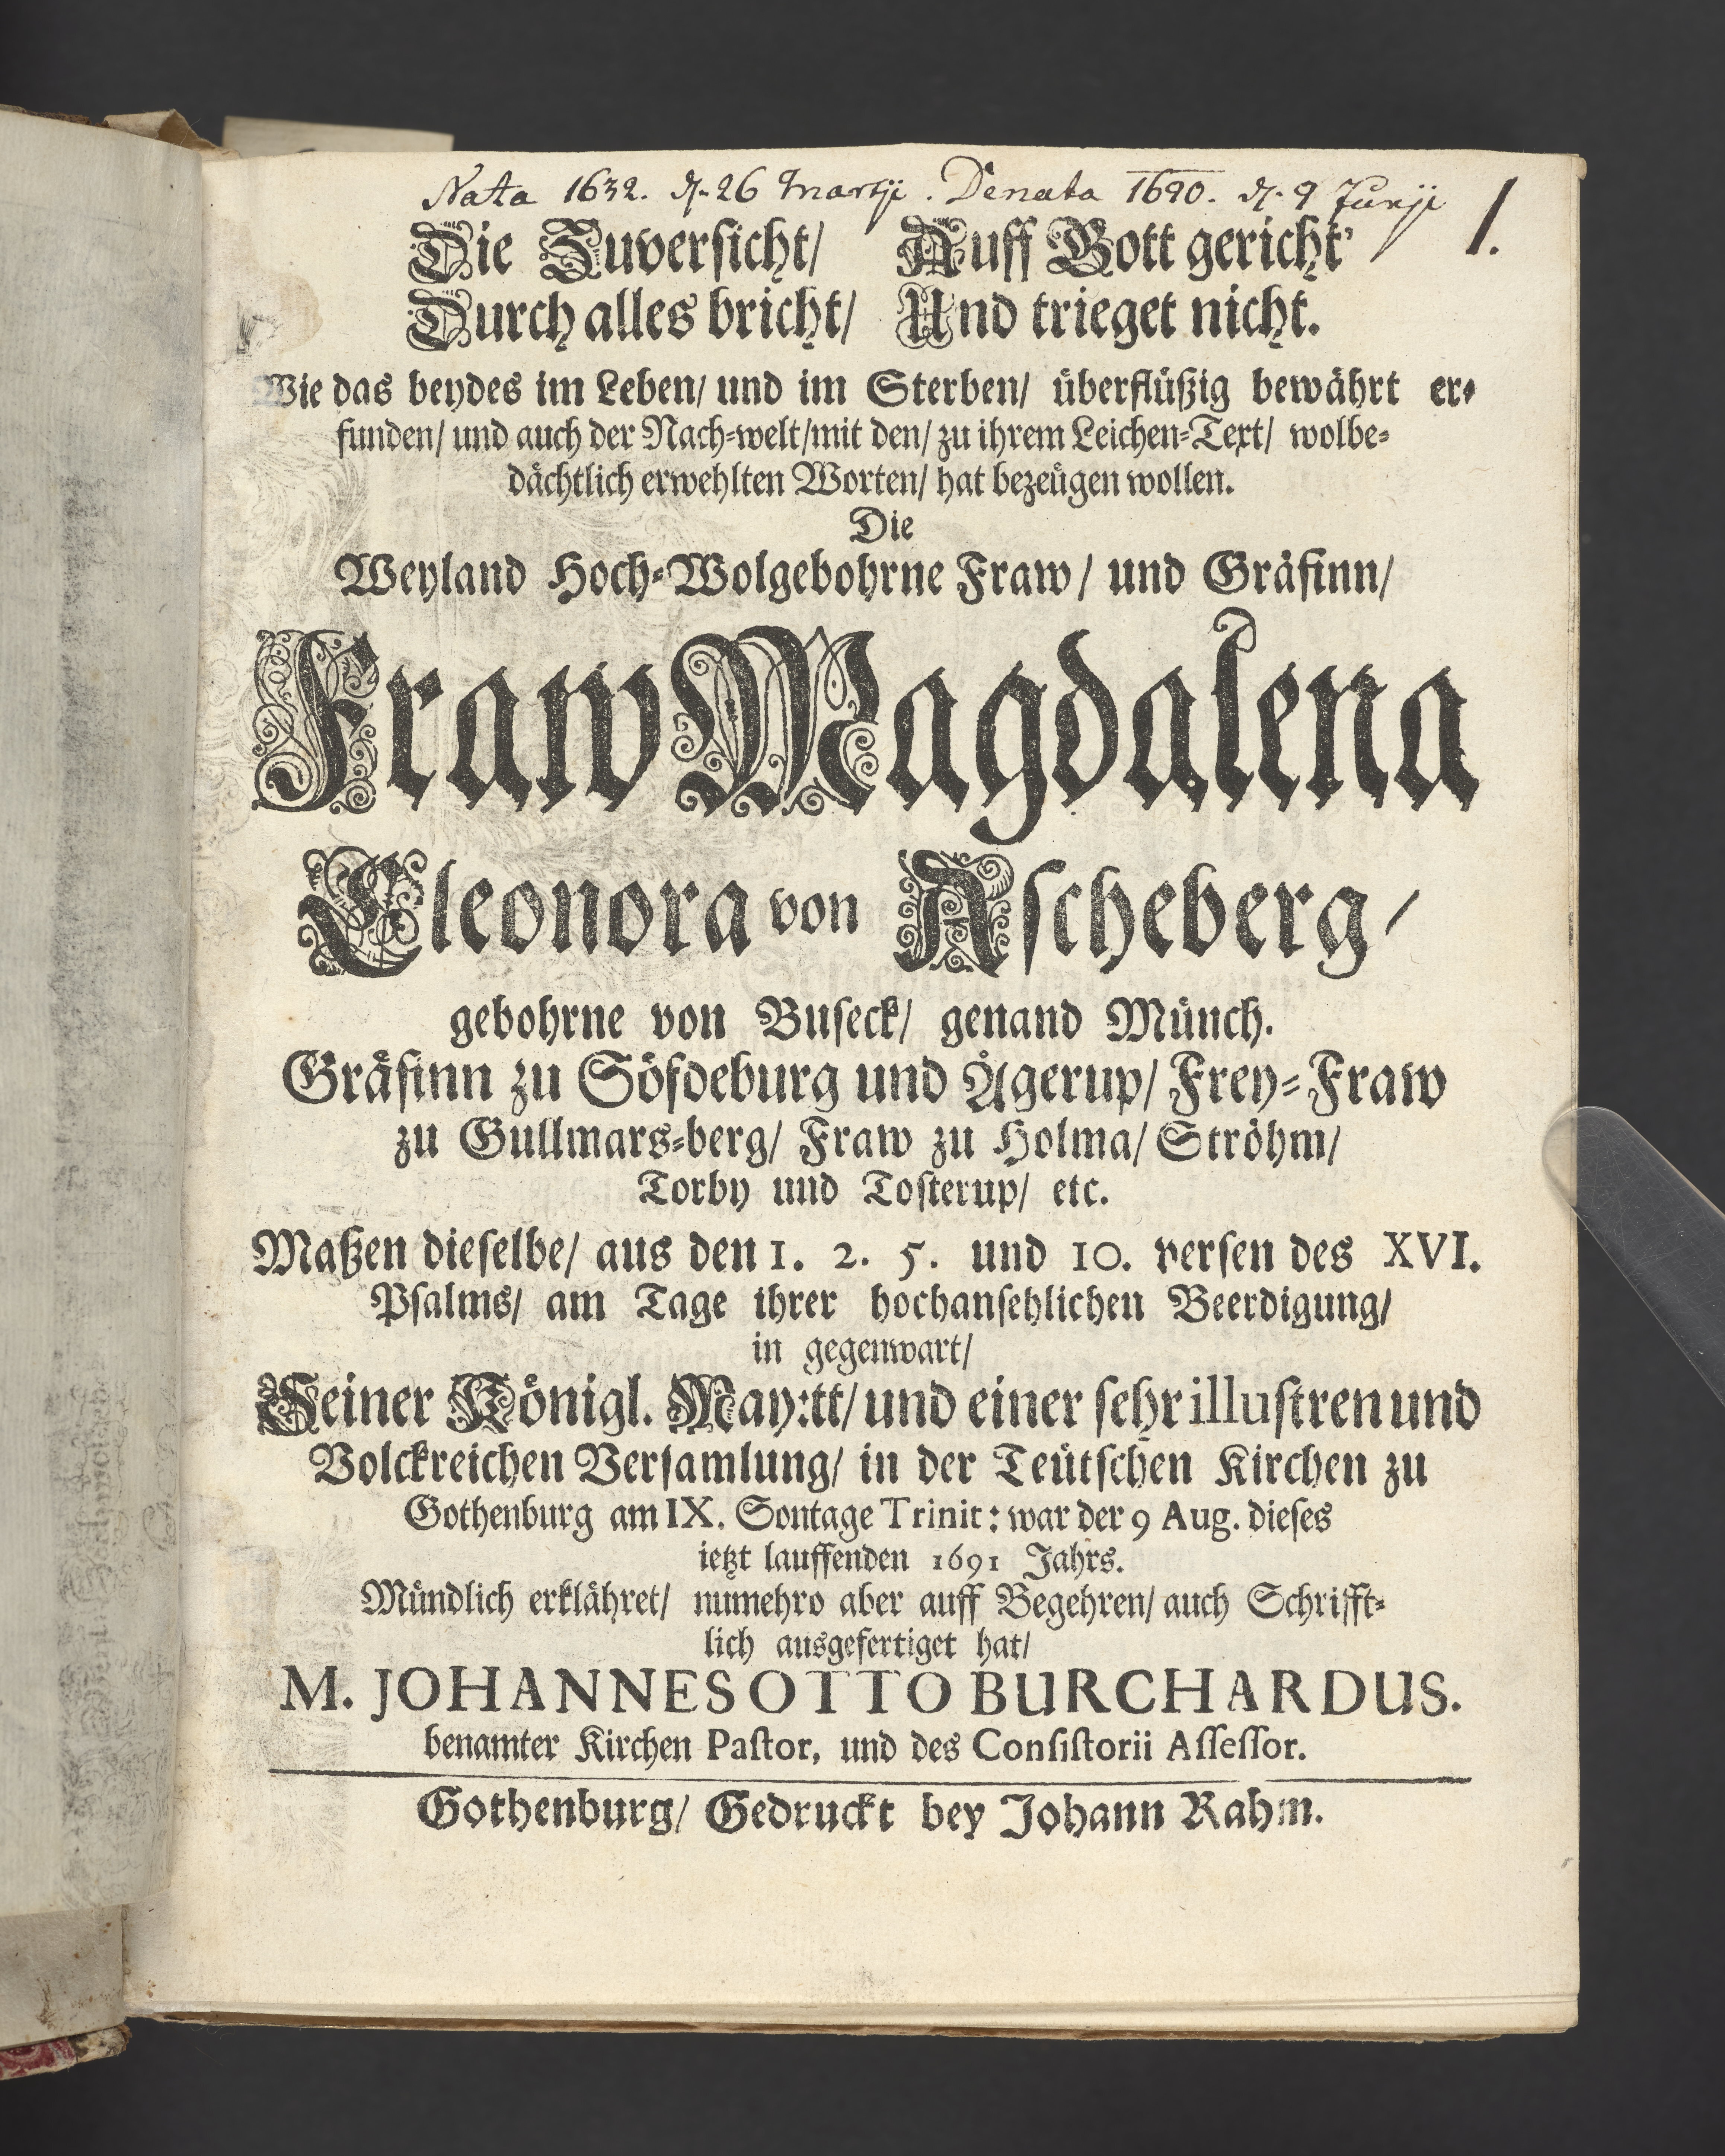 Nata 1632. d. 26 Martji. Denata 1690. d. 9 Junji
1.
Die Zuversicht/ Auff Gott gericht'
Durch alles bricht/ Und trieget nicht.
Wie das beydes im Leben/ und im Sterben/ überflüßig bewährt er-
funden/ und auch der Nach-welt/mit den/ zu ihrem Leichen-Text/ wolbe-
dächtlich erwehlten Worten/ hat bezeügen wollen.
Die
Weyland Hoch-Wolgebohrne Fraw/ und Gräfinn/
Fraw Magdalena
Eleonora von Ascheberg/
gebohrne von Buseck/ genand Münch.
Gräfinn zu Söfdeburg und Ågerup/ Frey-Fraw
zu Gullmars-berg/ Fraw zu Holma/ Ströhm/
Torby und Tosterup/ etc.
Maßen dieselbe/ aus den 1. 2. 5. und 10. versen des XVI.
Psalms/ am Tage ihrer hochansehlichen Beerdigung/
in gegenwart/
Seiner Königl. May:tt/ und einer sehr illustren und
Volckreichen Versamlung/ in der Teütschen Kirchen zu
Gothenburg am IX. Sontage Trinit: war der 9 Aug. dieses
ietzt lauffenden 1691 Jahrs.
Mündlich erklähret/ numehro aber auff Begehren/ auch Schrifft-
lich ausgefertiget hat/
M. JOHANNES OTTO BURCHARDUS.
benamter Kirchen Pastor, und des Consistorii Assessor.
Gothenburg/ Gedruckt bey Johann Rahm.